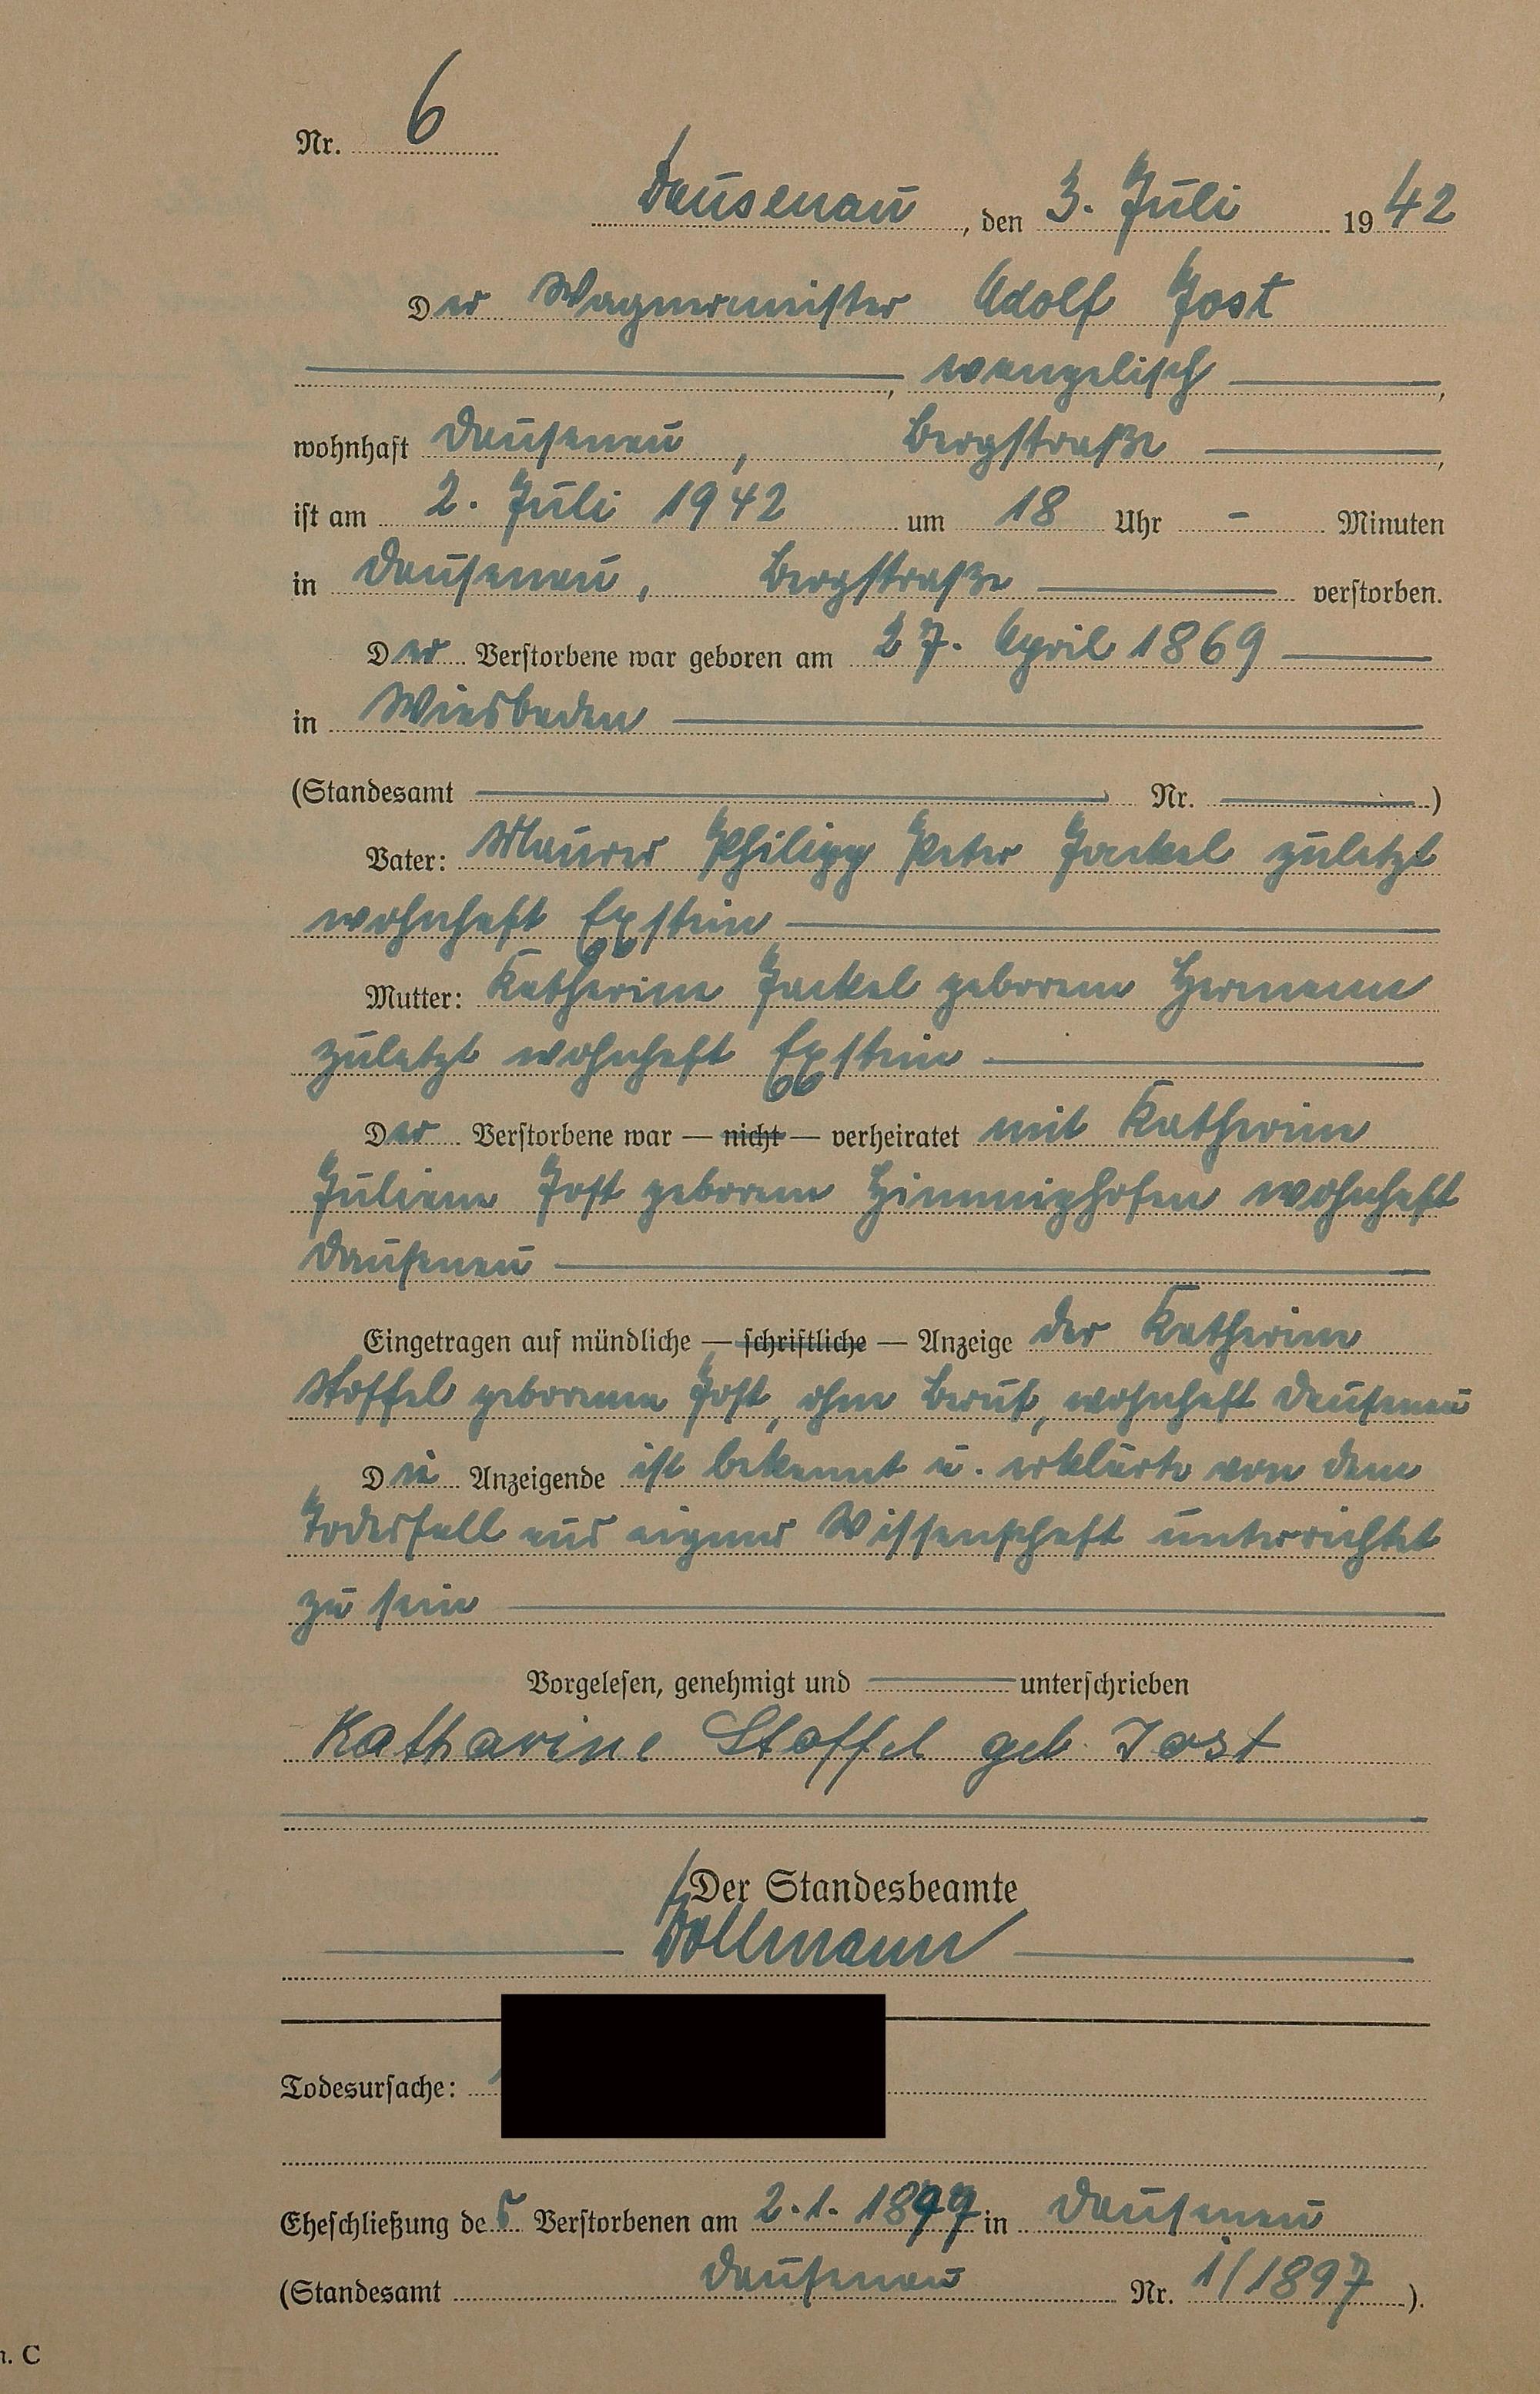 Nr. 6
Dausenau, den 3. Juli 1942
Der Wagnermeister Adolf Jost
, evangelisch,
wohnhaft Dausenau, Bergstraße,
ist am 2. Juli 1942 um 18 Uhr - Minuten
in Dausenau, Bergstraße verstorben.
Der Verstorbene war geboren am 27. April 1869
in Wiesbaden
(Standesamt Nr. )
Vater: Maurer Philipp Peter Jackel zuletzt
wohnhaft Eppstein
Mutter: Katharine Jackel geborene Hermann
zuletzt wohnhaft Eppstein
Der Verstorbene war — nicht — verheiratet mit Katharine
Juliane Jost geborene Himmighofen wohnhaft
Dausenau
Eingetragen auf mündliche — schriftliche — Anzeige der Katharine
Stoffel geborenen Jost, ohne Beruf, wohnhaft Dausenau
Die Anzeigende ist bekannt u. erklärte von dem
Todesfall aus eigener Wissenschaft unterrichtet
zu sein
Vorgelesen, genehmigt und unterschrieben
Katharine Stoffel geb. Jost
Der Standesbeamte
Dollmann
Todesursache:
Eheschließung des Verstorbenen am 2.1.1897 in Dausenau
(Standesamt Dausenau Nr. 1/1897).
. C